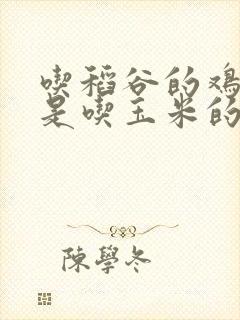 喫稻谷的鸡
是喫玉米的
陳學冬